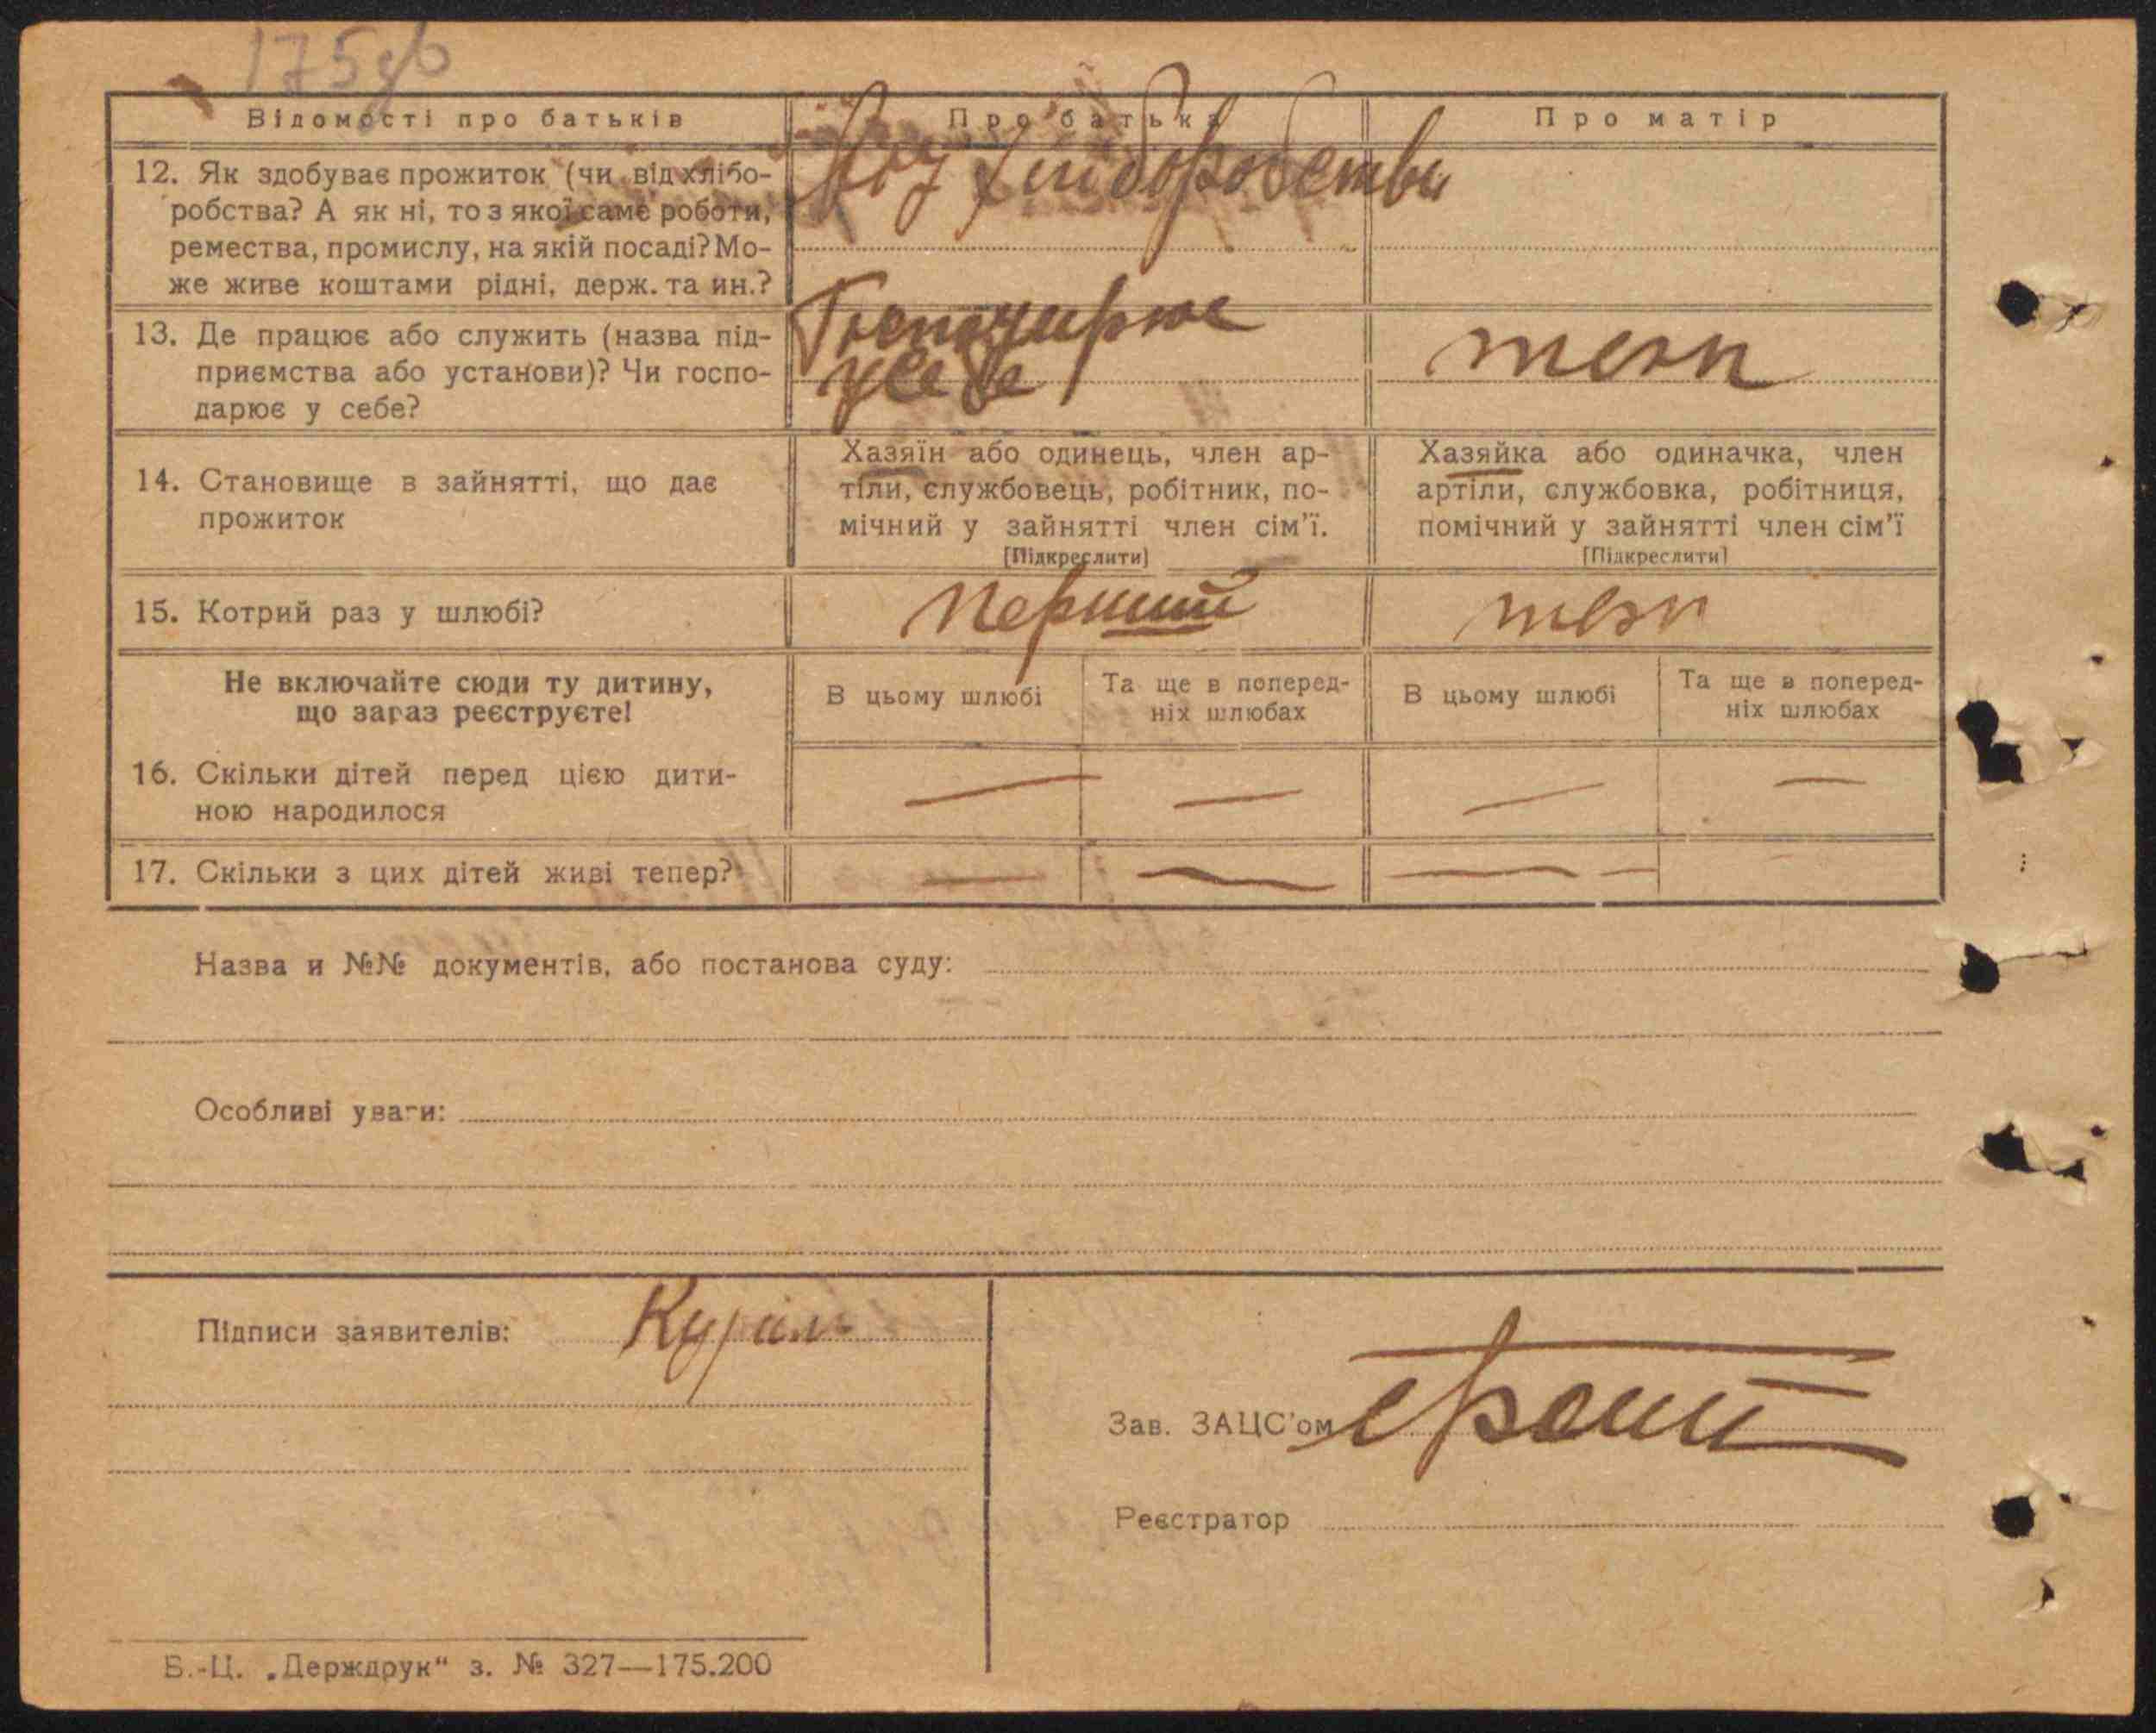 175
Відомості про батьків Про батька Про матір
12. Як здобуває прожиток (чи від хлібо-
робства? А як ні, то з якої саме роботи,
ремества, промислу, на якій посаді? Мо-
же живе коштами рідні, держ. та ин.?
Від хліборобства
13. Де працює або служить (назва під-
приємства або установи)? Чи госпо-
дарює у себе?
Господарює
у себе
теж
14. Становище в зайнятті, що дає
прожиток
Хазяїн або одинець, член ар-
тіли, службовець, робітник, по-
мічний у зайнятті член сім'ї.
[Підкреслити]
Хазяйка або одиначка, член
артіли, службовка, робітниця,
помічний у зайнятті член сім'ї
[Підкреслити]
15. Котрий раз у шлюбі?
Перший
Не включайте сюди ту дитину,
що зараз реєструєте!
В цьому шлюбі
Та ще в поперед-
ніх шлюбах
В цьому шлюбі
Та ще в поперед-
ніх шлюбах
16. Скільки дітей перед цією дити-
ною народилося
— — — —
17. Скільки з цих дітей живі тепер?
— — — —
Назва и №№ документів, або постанова суду:
Особливі уваги:
Підписи заявителів:
Зав. ЗАЦС'ом
Реєстратор
Б.-Ц. „Держдрук“ з. № 327—175.200